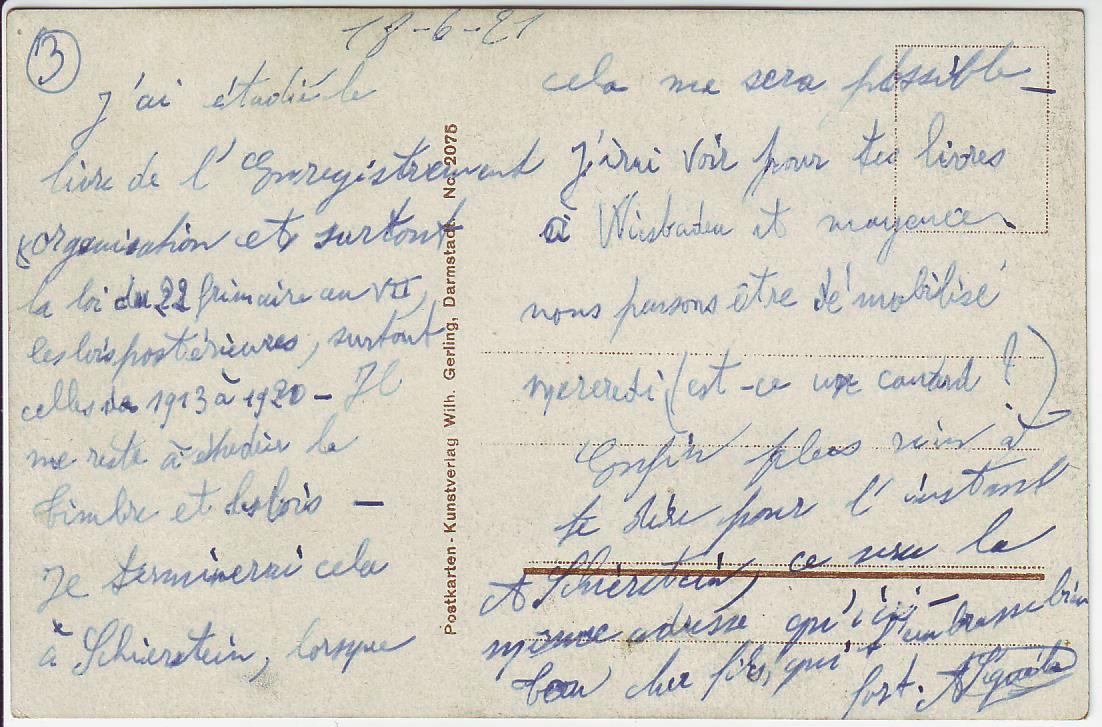 3
18-6-21
J'ai étudié le
livre de l'Enregistrement
(organisation et surtout
la loi du 22 frimaire an VII,
les lois postérieures, surtout
celles de 1913 à 1920 - Il
me reste à étudier le
timbre et les lois —
Je terminerai cela
à Schierstein, lorsque
Postkarten - Kunstverlag Wilh. Gerling, Darmstadt. No. 2075
cela me sera possible —
J'irai voir pour tes livres
à Wiesbaden et mayence.
nous pensons être démobilisé
mercredi (est-ce un canard ?)
Enfin plus rien à
te dire pour l'instant
A Schierstein, ce sera la
même adresse qu'ici —
Ton cher fils, qui t'embrasse bien
fort.